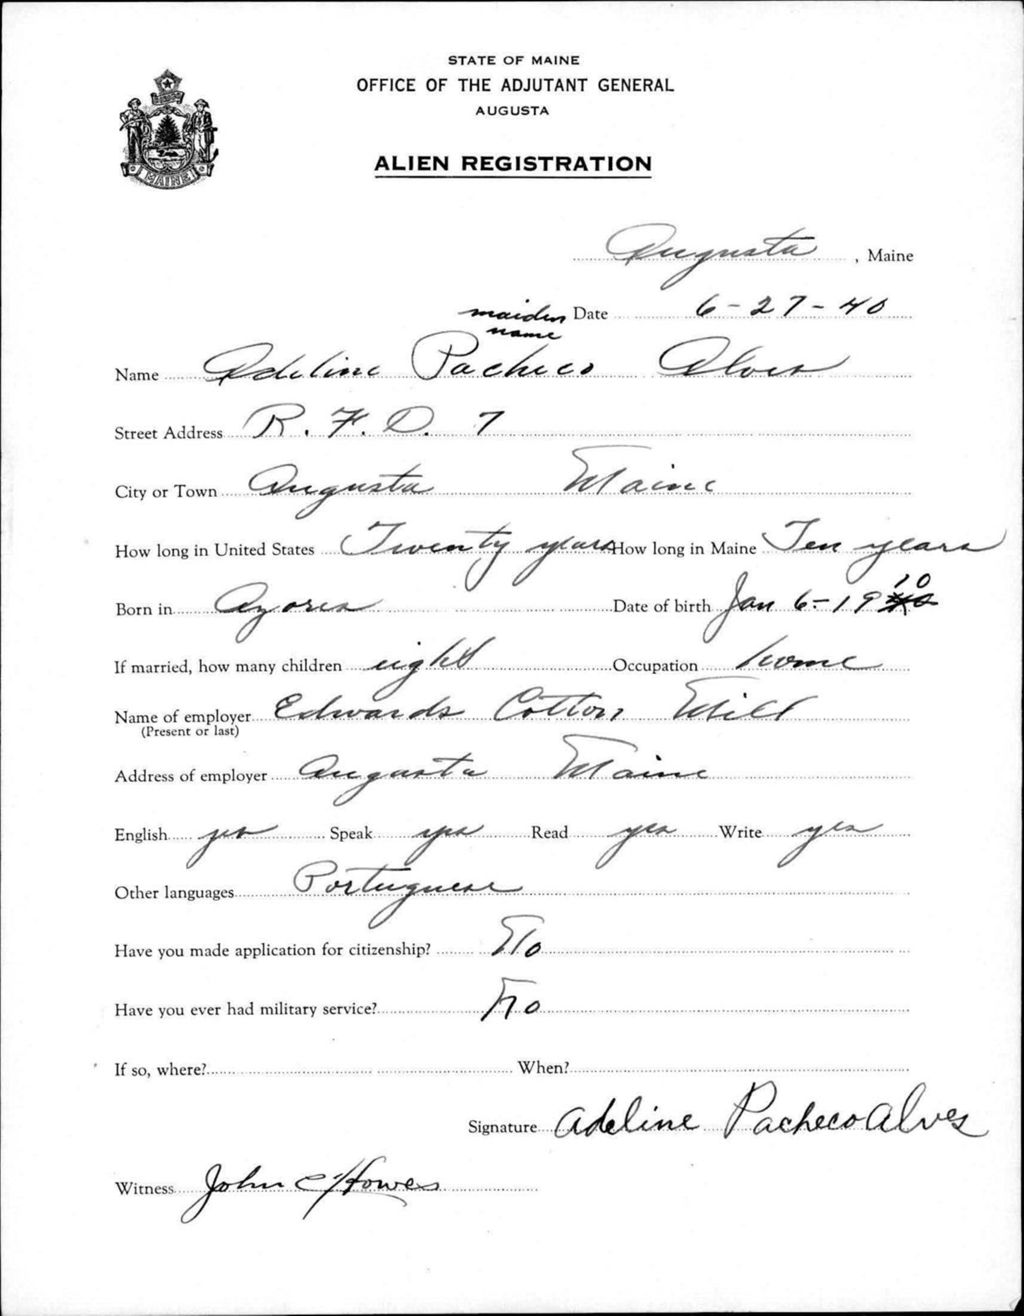 STATE OF MAINE
OFFICE OF THE ADJUTANT GENERAL
AUGUSTA
MAINE
ALIEN REGISTRATION
Augusta, Maine
maiden name
Date 6-27-40
Name Adeline Pacheco Alves
Street Address R. F. D. 7
City or Town Augusta Maine
How long in United States Twenty years How long in Maine Ten years
Born in Azores Date of birth Jan 6-1910
If married, how many children eight Occupation home
Name of employer Edwards Cotton Mill
(Present or last)
Address of employer Augusta Maine
English yes Speak yes Read yes Write yes
Other languages Portuguese
Have you made application for citizenship? No
Have you ever had military service? No
If so, where? When?
Signature Adeline Pacheco Alves
Witness John C Howes